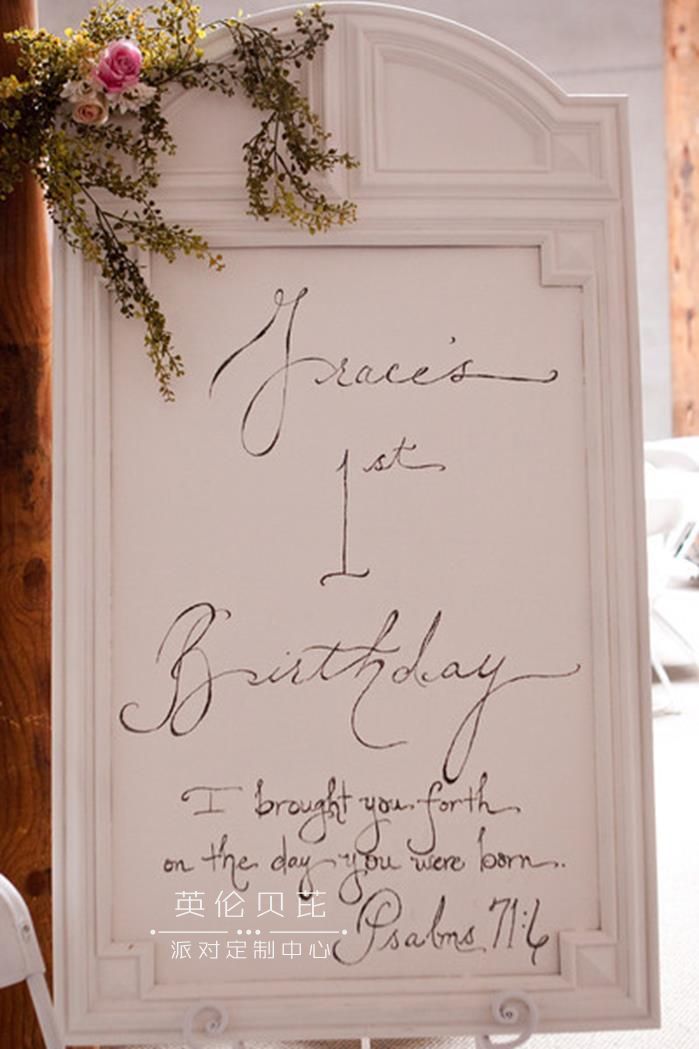 Grace's
1st
Birthday
I brought you forth
on the day you were born.
Psalms 71:6
英伦贝芘
派对定制中心